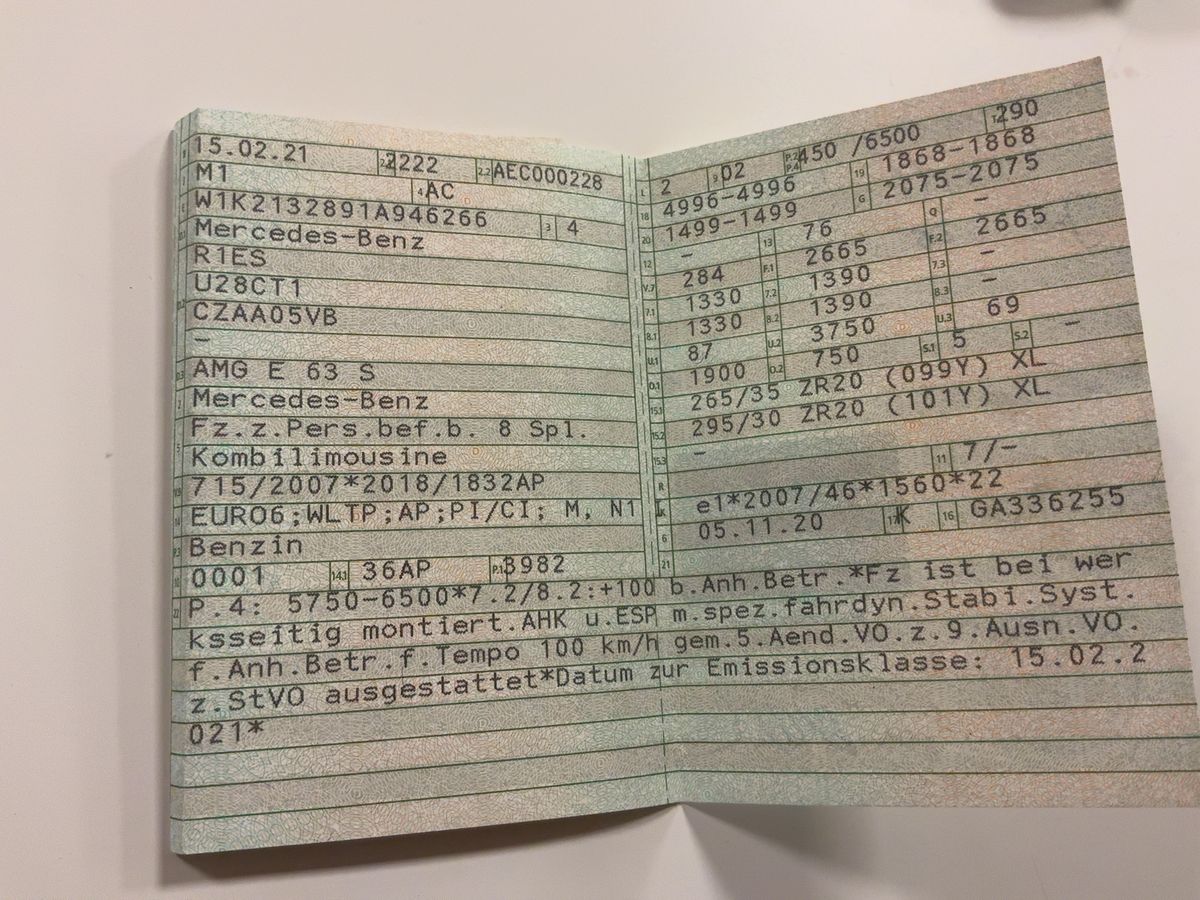 15.02.21 2.1 2222 2.2 AEC000228
M1 4 AC
W1K2132891A946266 3 4
Mercedes-Benz
R1ES
U28CT1
CZAA05VB
–
AMG E 63 S
Mercedes-Benz
Fz.z.Pers.bef.b. 8 Spl.
Kombilimousine
715/2007*2018/1832AP
EURO6;WLTP;AP;PI/CI; M, N1
Benzin
0001 14.1 36AP P.1 3982
L 2 9 02 P.2 P.4 450 /6500 T 290
18 4996-4996 19 1868-1868
20 1499-1499 G 2075-2075
12 – 13 76 Q –
V.7 284 F.1 2665 F.2 2665
7.1 1330 7.2 1390 7.3 –
8.1 1330 8.2 1390 8.3 –
U.1 87 U.2 3750 U.3 69
O.1 1900 O.2 750 S.1 5 S.2 –
15.1 265/35 ZR20 (099Y) XL
15.2 295/30 ZR20 (101Y) XL
15.3 –
R 11 7/–
K e1*2007/46*1560*22
6 05.11.20 17 K 16 GA336255
21
22 P.4: 5750-6500*7.2/8.2:+100 b.Anh.Betr.*Fz ist bei wer
ksseitig montiert.AHK u.ESP m.spez.fahrdyn.Stabi.Syst.
f.Anh.Betr.f.Tempo 100 km/h gem.5.Aend.VO.z.9.Ausn.VO.
z.StVO ausgestattet*Datum zur Emissionsklasse: 15.02.2
021*